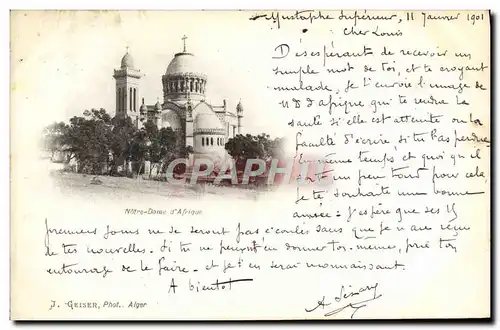 Mustapha Supérieur, 11 Janvier 1901
Cher Louis
Désespérant de recevoir un
simple mot de toi, et te croyant
malade, je t'envoie l'image de
N D d'Afrique qui te rendra la
santé si elle est atteinte ou la
faculté d'écrire, si tu l'as perdue
En même temps et quoiqu'il
soit un peu tard pour cela
je te souhaite une bonne
année. J'espère que les 15
premiers jours ne se seront pas écoulés sans que je n'aie reçu
de tes nouvelles. Si tu ne peux en donner toi-même, prie ton
entourage de le faire, et je t'en serai reconnaissant.
A bientôt
Notre-Dame d'Afrique
DELCAMPE
J. GEISER, Phot. Alger